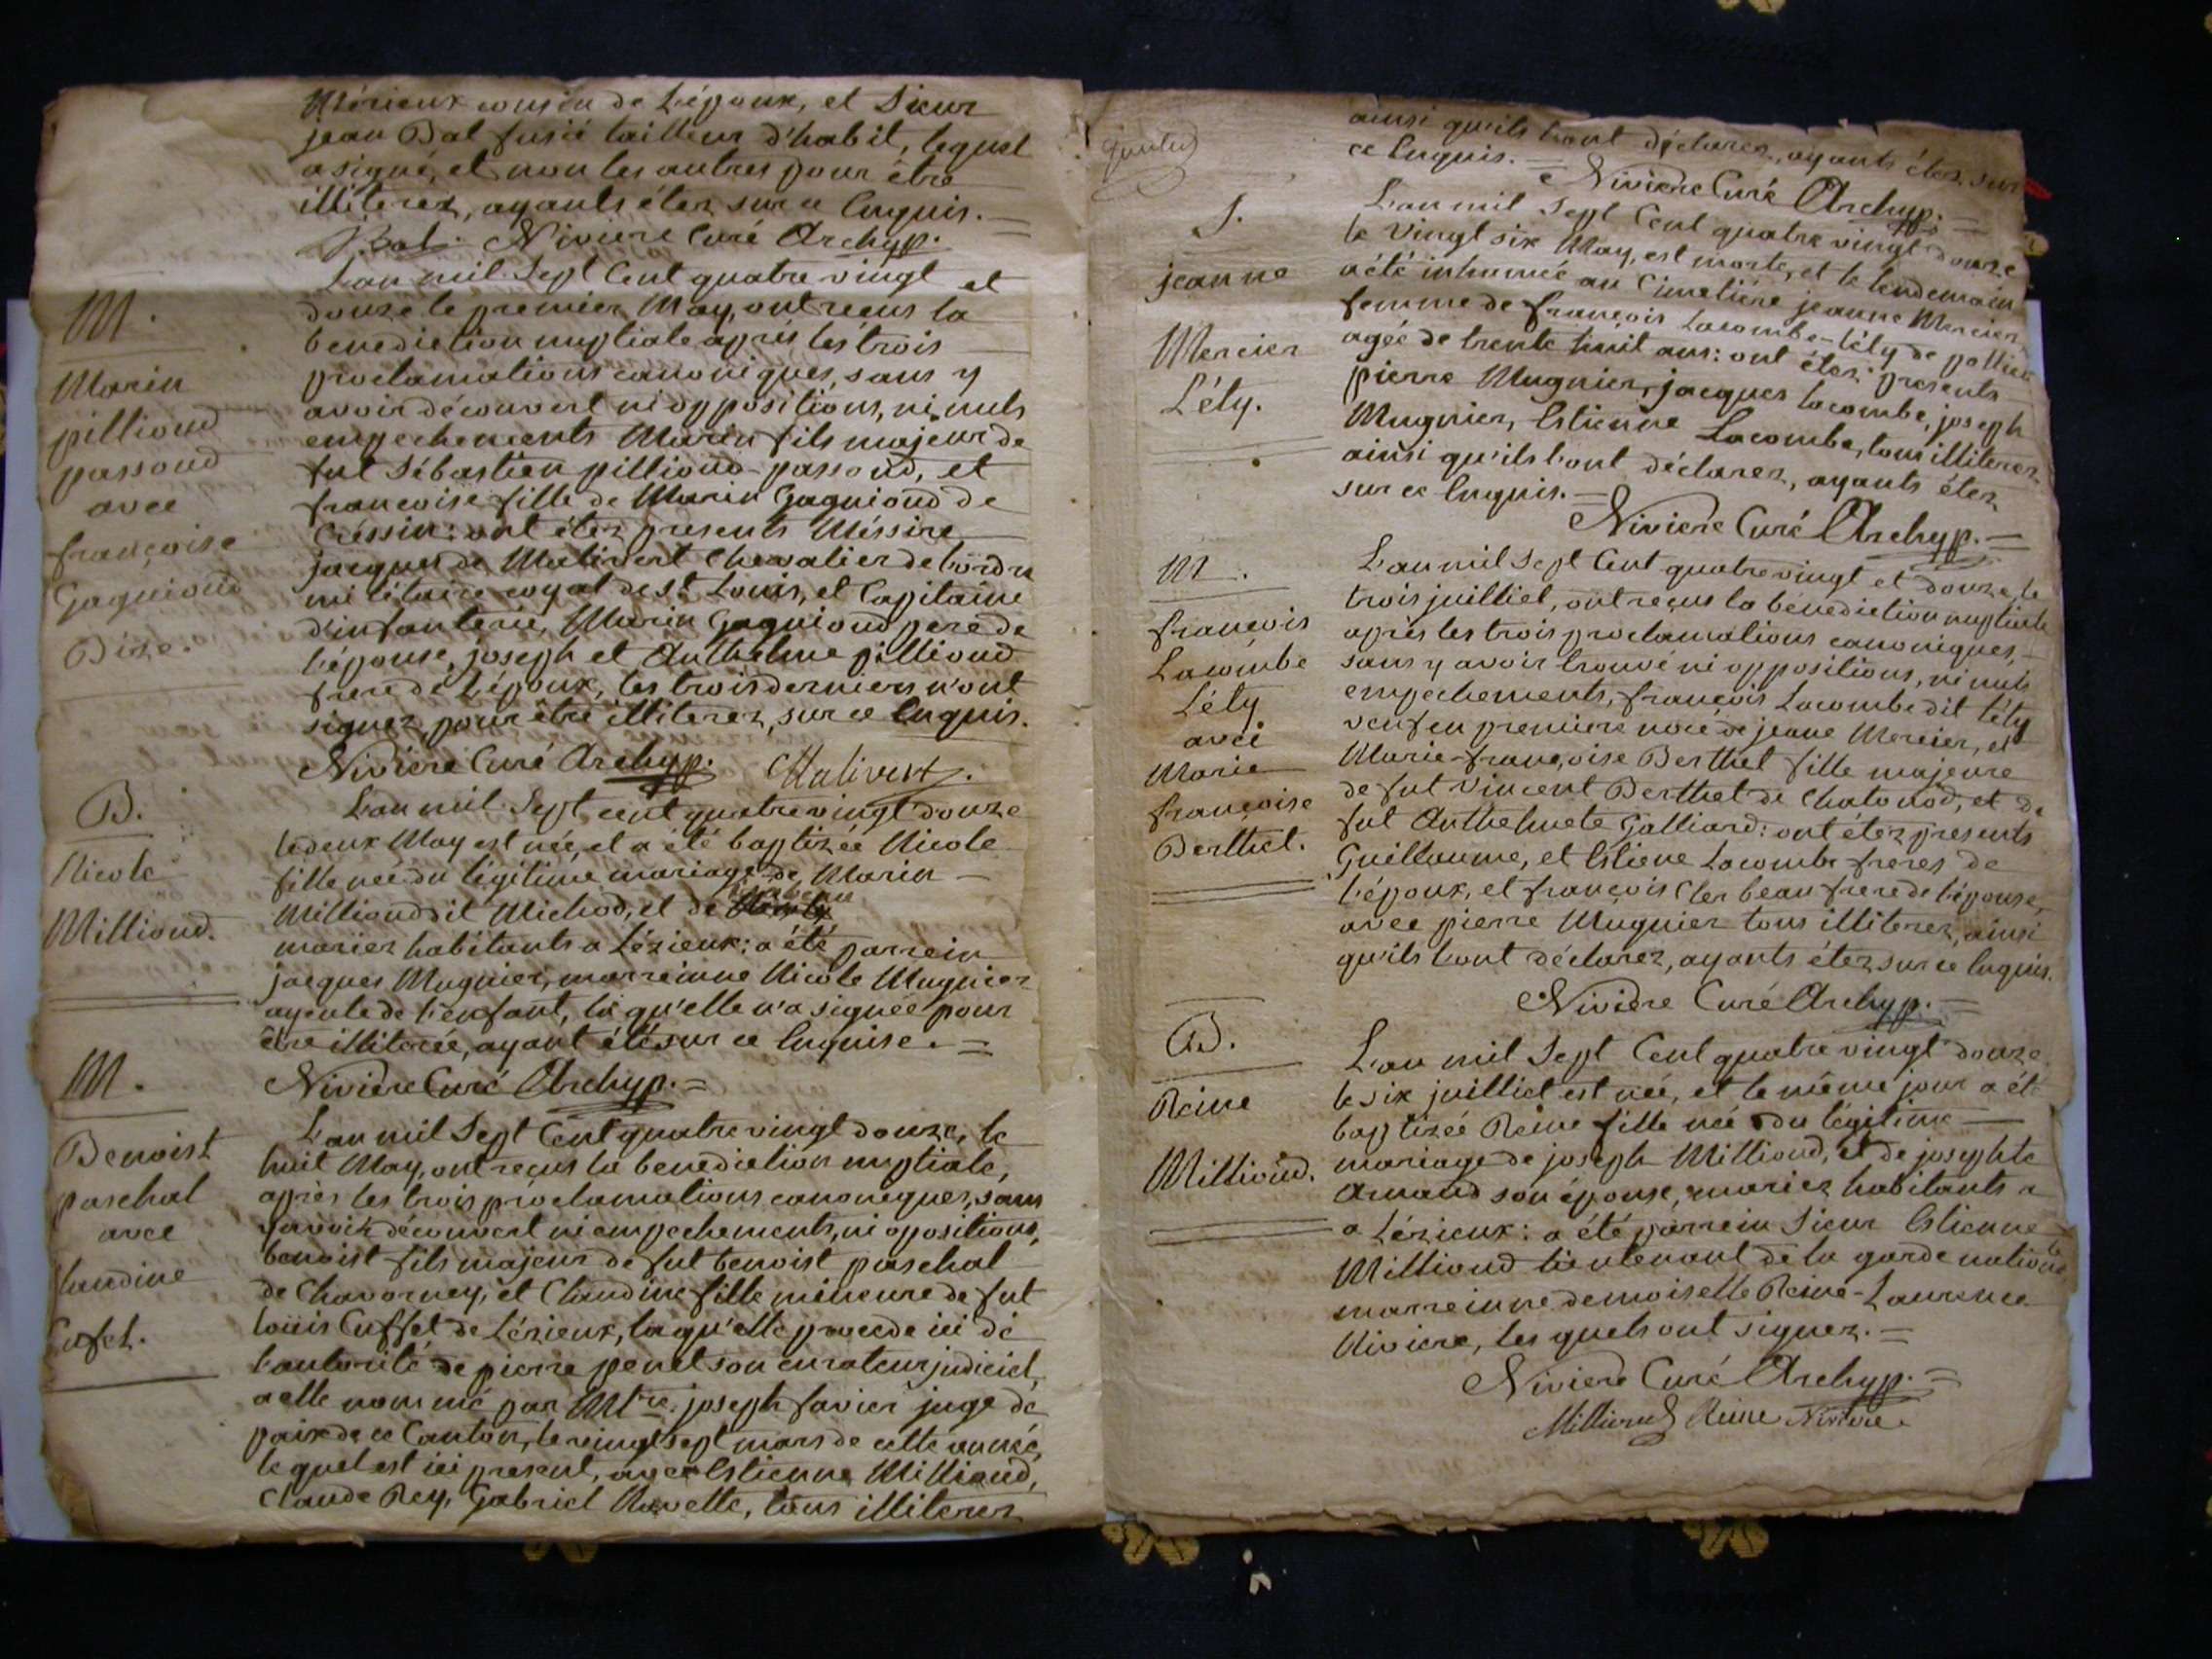 Mérieux cousin de L'époux, et Sieur
jean Bal fusié tailleur d'habit, lequel
a signé, et non les autres pour être
illiterez, ayants étez sur ce Enquis. =
Bal. Niviere Curé Archyp.
M.
Marin
pilliond
passond
avec
françoise
Gagniond
Dize.
L'an mil Sept Cent quatre vingt et
douze le premier May, ont reçus la
benediction nuptiale après les trois
proclamations canoniques, sans y
avoir découvert ni oppositions, ni nuls
empechements Marin fils majeur de
fut Sébastien pilliond-passond, et
françoise fille de Marin Gagniond de
Créssin: ont étez presents Méssire
jacques de Malivert Chevalier de l'ordre
militaire royal de St Louis, et Capitaine
d'infanterie, Marin Gagniond pere de
l'épouse, joseph et Anthelme pilliond
frere de L'époux, les trois derniers n'ont
signez, pour être illiterez, sur ce Enquis.
Niviere Curé Archyp. Malivert.
B.
Nicole
Milliond.
L'an mil Sept cent quatre vingt douze
le deux May est née, et a été baptizée Nicole
fille née du légitime mariage de Marin
Milliond dit Michod, et de
mariez habitants a Lézieux: a été parrein
jacques Mugnier, marreinne Nicole Mugnier
ayeule de l'enfant, la qu'elle n'a signée pour
être illiterée, ayant été sur ce Enquise. =
Niviere Curé Archyp. =
M.
Benoist
paschal
avec
laudine
Cufet.
L'an mil Sept Cent quatre vingt douze, le
huit May, ont reçus la benediction nuptiale,
après les trois proclamations canoniques, sans
y avoir découvert ni empechements, ni opositions,
benoist fils majeur de fut benoist paschal
de Chavorney, et Claudine fille mineure de fut
Loüis Cuffet de Lézieux, la qu'elle procede ici de
l'autorité de pierre penet son curateur judiciel,
a elle nommé par Mtre joseph favier juge de
paix de ce Canton, le vingt sept mars de cette année,
le quel est ici present, avec Estienne Milliond,
Claude Rey, Gabriel Ravette, tous illiterez
ainsi qu'ils l'ont déclarez, ayants étez sur
ce Enquis. = Niviere Curé Archyp. =
S.
jeanne
Mercier
Léty.
L'an mil Sept Cent quatre vingt douze
le Vingt six May, est morte, et le lendemain
a été inhumée au Cimetiére jeanne Mercier
femme de françois Lacombe-Léty de pollieu
agée de trente huit ans: ont étez presents
pierre Mugnier, jacques Lacombe, joseph
Mugnier, Estienne Lacombe, tous illiterez
ainsi qu'ils l'ont déclarez, ayants étez
sur ce Enquis. =
Niviere Curé Archyp. =
M.
françois
Lacombe
Léty
avec
Marie
françoise
Berthet.
L'an mil Sept Cent quatre vingt et douze, le
trois juilliet, ont reçus la bénediction nuptiale
après les trois proclamations canoniques,
sans y avoir trouvé ni oppositions, ni nuls
empechements, françois Lacombe dit Léty
veuf en premiere noce de jeane Mercier, et
Marie-françoise Berthet fille majeure
de fut Vincent Berthet de Chatonod, et de
fut Anthelmete Galliard: ont étez presents
Guillaume, et Estiene Lacombe freres de
l'époux, et françois Cler beau frere de l'épouse,
avec pierre Mugnier tous illiterez, ainsi
qu'ils l'ont déclarez, ayants étez sur ce Enquis.
Niviere Curé Archyp. =
B.
Reine
Milliond.
L'an mil Sept Cent quatre vingt douze
le six juilliet est née, et le même jour a été
baptizée Reine fille née du légitime
mariage de joseph Milliond, et de josephte
Arnaud son épouse, mariez habitants a
a Lézieux: a été parrein Sieur Estienne
Milliond lieutenant de la garde nationale
marreinne demoiselle Reine-Laurence
Niviere, les quels ont signez. =
Niviere Curé Archyp. =
Milliond Reine Niviere.